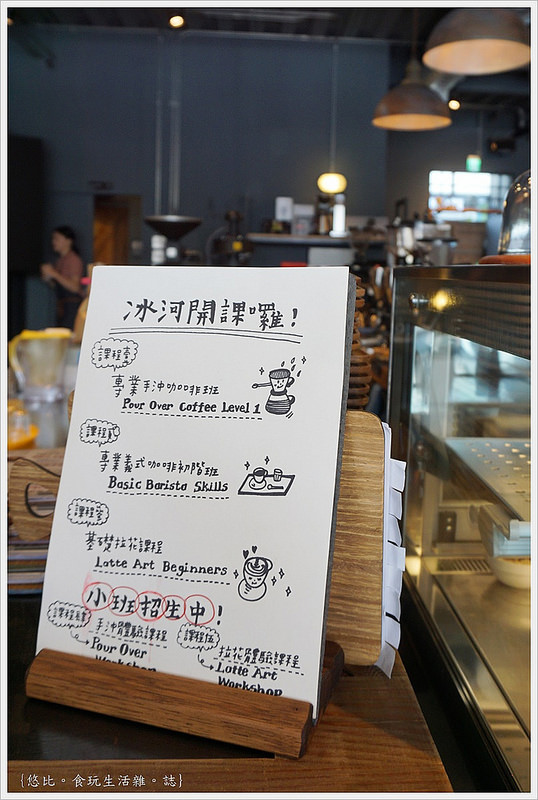 冰河開課囉!
課程壹
專業手沖咖啡班
Pour Over Coffee Level 1
課程貳
專業義式咖啡初階班
Basic Barista Skills
課程參
基礎拉花課程
Latte Art Beginners
小班招生中!
課程肆
手沖體驗課程
Pour Over
Workshop
課程伍
拉花體驗課程
Latte Art
Workshop
{悠比。食玩生活雜。誌}